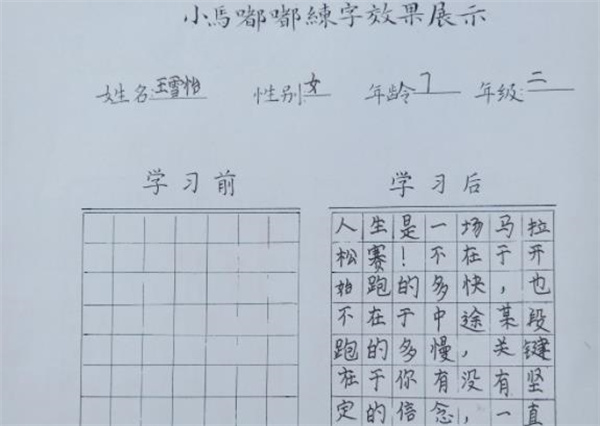 小馬嘟嘟練字效果展示
姓名:王雪怡 性别:女 年龄 7 年级:二
学习前
学习后
人生是一场马拉
松赛！不在于开
始跑的多快，也
不在于中途某段
跑的多慢，关键
在于你有没有坚
定的信念，一直